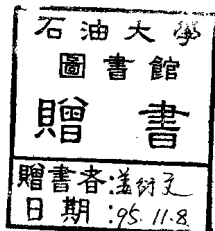 石油大學
圖書館
贈書
贈書者:姜衍文
日期:95.11.8.